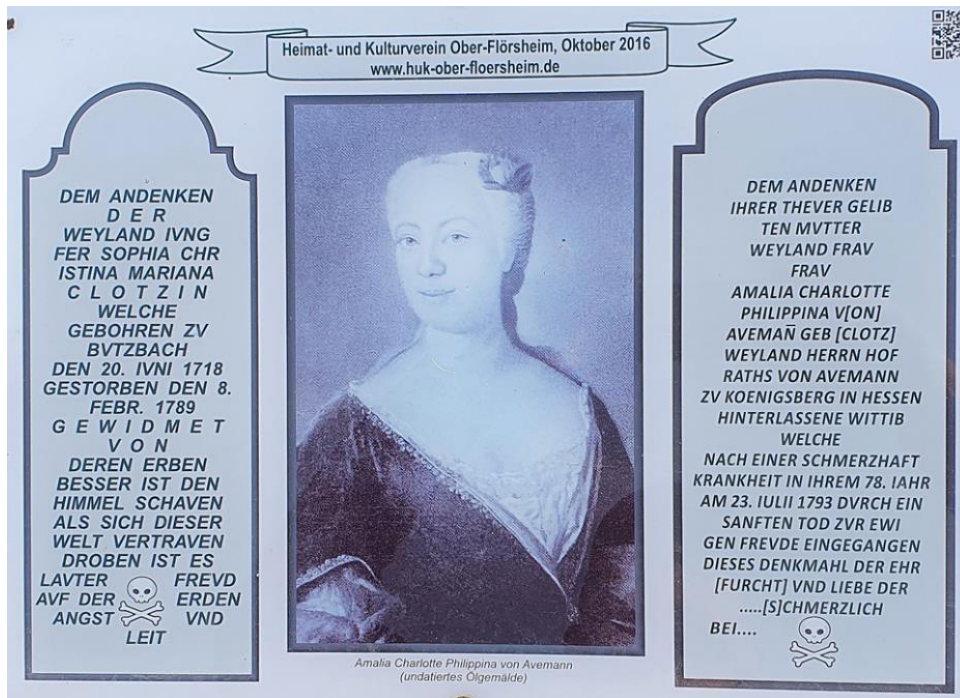 Heimat- und Kulturverein Ober-Flörsheim, Oktober 2016
www.huk-ober-floersheim.de
DEM ANDENKEN
D E R
WEYLAND IVNG
FER SOPHIA CHR
ISTINA MARIANA
C L O T Z I N
WELCHE
GEBOHREN ZV
BVTZBACH
DEN 20. IVNI 1718
GESTORBEN DEN 8.
FEBR. 1789
G E W I D M E T
V O N
DEREN ERBEN
BESSER IST DEN
HIMMEL SCHAVEN
ALS SICH DIESER
WELT VERTRAVEN
DROBEN IST ES
LAVTER FREVD
AVF DER ERDEN
ANGST VND
LEIT
Amalia Charlotte Philippina von Avemann
(undatiertes Ölgemälde)
DEM ANDENKEN
IHRER THEVER GELIB
TEN MVTTER
WEYLAND FRAV
FRAV
AMALIA CHARLOTTE
PHILIPPINA V[ON]
AVEMAN̄ GEB [CLOTZ]
WEYLAND HERRN HOF
RATHS VON AVEMANN
ZV KOENIGSBERG IN HESSEN
HINTERLASSENE WITTIB
WELCHE
NACH EINER SCHMERZHAFT
KRANKHEIT IN IHREM 78. IAHR
AM 23. IULII 1793 DVRCH EIN
SANFTEN TOD ZVR EWI
GEN FREVDE EINGEGANGEN
DIESES DENKMAHL DER EHR
[FURCHT] VND LIEBE DER
.....[S]CHMERZLICH
BEI....